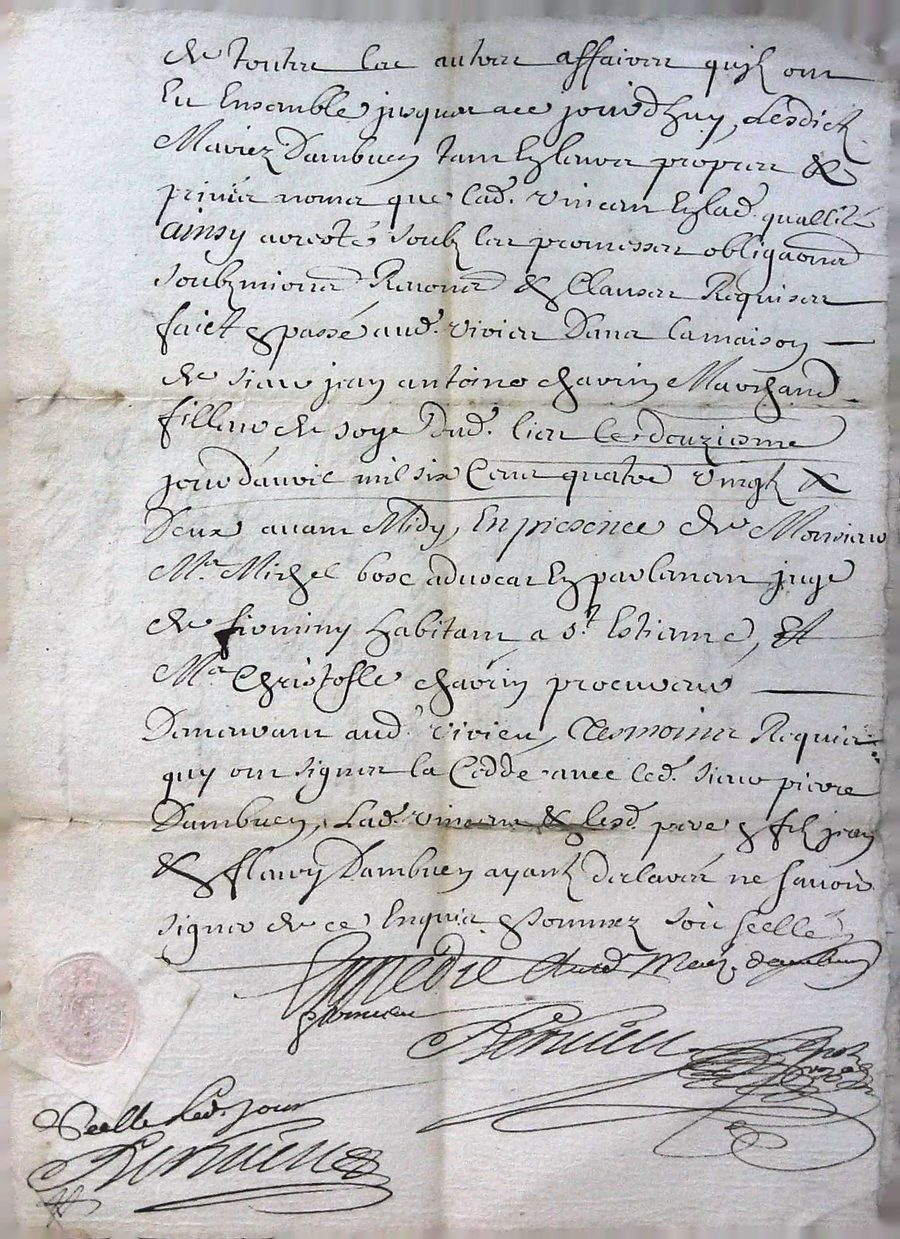 de toutes les autres affaires quils ont
Eu Ensemble jusques a ce jourdhuy, Lesdicts
Mariez Dambuen tant En leurs propres &
privés noms que lad. vincent En lad. quallité
ainsy arresté soubz les promesses obligaons
soubzmions Renons & Clauses Requises
faict & passé aud. Vivier Dans la maison
de sieur jean antoine chavin Marchand
filleur de soye dud. lieu le douziesme
jour d'avril mil six Cents quatre vingts &
Deux avant Midy, En presence de Monsieur
Mre. Michel bose advocat En parlement juge
de firminy habitant a St. Estienne, Et
Mre. Christofle chavin procureur
Demeurant aud. Vivier, tesmoins Requis
quy ont signés la Cedde avec led. sieur pierre
Dambuen, Lad. vincent & lesd. pere & fils jean
& fleury Dambuen ayants declarés ne sçavoir
signer de ce Enquis & sommez soit scellé
Expedié ausd. Mariez dambuen
Scellé Led. jour